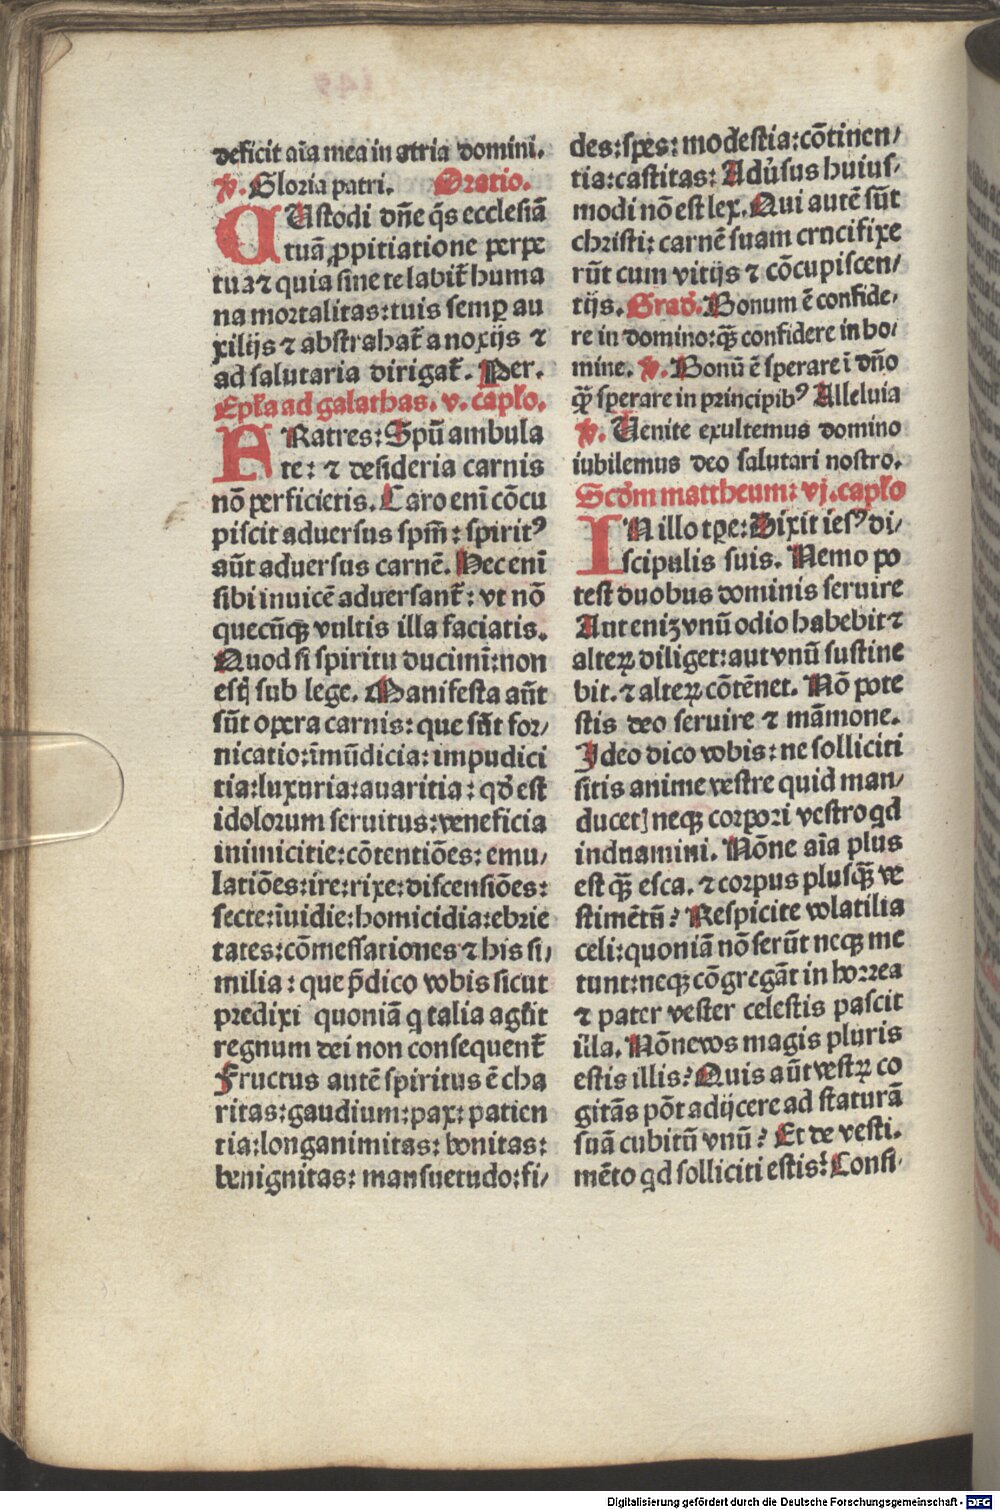 deficit aīa mea in atria domini.
℣. Gloria patri. Oratio.
CUstodi dn̄e q̄s ecclesiā
tuā ꝓpitiatione perpe
tua ⁊ quia sine te labit̄ huma
na mortalitas: tuis semꝑ au
xilijs ⁊ abstrahat̄ a noxijs ⁊
ad salutaria dirigat̄. Per.
Epl̄a ad galathas. v. capl̄o.
FRatres: Spū ambula
te: ⁊ desideria carnis
nō perficietis. Caro enī cōcu
piscit aduersus spm̄: spiritꝰ
aūt aduersus carnē. Hec enī
sibi inuicē aduersant̄: vt nō
quecūqꝫ vultis illa faciatis.
Quod si spiritu ducimī: non
estꝭ sub lege. Manifesta aūt
sūt opera carnis: que sūt for⸗
nicatio: īmūdicia: impudici
tia: luxuria: auaritia: qd̄ est
idolorum seruitus: veneficia
inimicitie: cōtentiōes: emu⸗
latiōes: ire: rixe: discensiōes:
secte: īuidie: homicidia: ebrie
tates: cōmessationes ⁊ his si⸗
milia: que p̄dico vobis sicut
predixi quoniā q talia agūt
regnum dei non consequent̄
Fructus autē spiritus ē cha
ritas: gaudium: pax: patien
tia: longanimitas: bonitas:
benignitas: mansuetudo: fi⸗
des: spes: modestia: cōtinen⸗
tia: castitas: Adūsus huius⸗
modi nō est lex. Qui autē sūt
christi: carnē suam crucifixe
rūt cum vitijs ⁊ cōcupiscen⸗
tijs. Grad̄. Bonum ē confide⸗
re in domino: qꝫ̄ confidere in ho⸗
mine. ℣. Bonū ē sperare ī dn̄o
qꝫ̄ sperare in principibꝰ Alleluia
℣. Uenite exultemus domino
iubilemus deo salutari nostro.
Scd̄m mattheum: vj. capl̄o
IN illo tꝑe: Dixit iesꝰ di⸗
scipulis suis. Nemo po
test duobus dominis seruire
Aut eniꝫ vnū odio habebit ⁊
alteꝝ diliget: aut vnū sustine
bit. ⁊ alteꝝ cōtēnet. Nō pote
stis deo seruire ⁊ māmone.
Ideo dico vobis: ne solliciti
sitis anime vestre quid man⸗
ducetꝭ neqꝫ corpori vestro qd
induamini. Nōne aīa plus
est qꝫ̄ esca. ⁊ corpus plusqꝫ̄ ve
stimētū? Respicite volatilia
celi: quoniā nō serūt neqꝫ me
tunt: neqꝫ cōgregāt in horrea
⁊ pater vester celestis pascit
illa. Nōne vos magis pluris
estis illis? Quis aūt vestꝝ co
gitās pōt adijcere ad staturā
suā cubitū vnū? Et de vesti⸗
mēto qd solliciti estis? Consi⸗
Digitalisierung gefördert durch die Deutsche Forschungsgemeinschaft - DFG